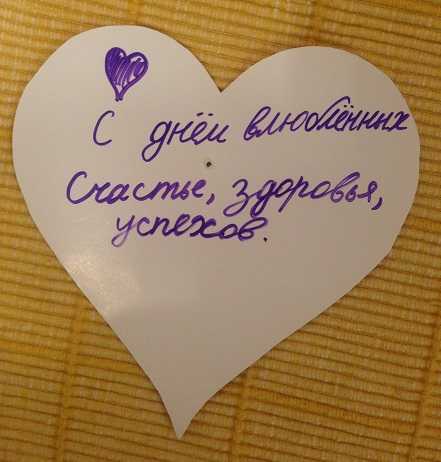 С днём влюблённых
Счастье, здоровья,
успехов.